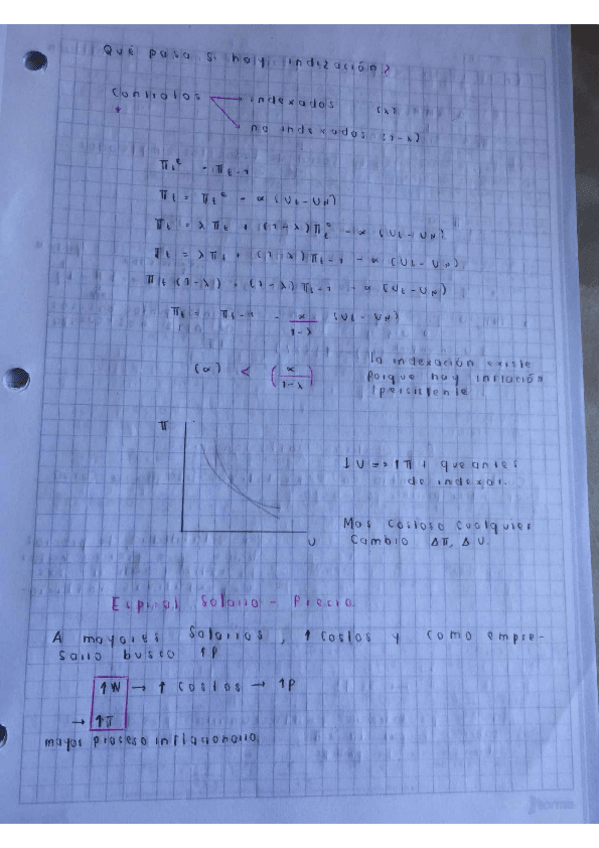 Qué pasa si hay indización?
contratos → indexados (λ)
no indexados (1-λ)
πtᵉ = πt-1
πt = πtᵉ - α (Ut - UN)
πt = λπt + (1-λ)πtᵉ - α (Ut - UN)
πt = λπt + (1-λ)πt-1 - α (Ut - UN)
πt (1-λ) = (1-λ) πt-1 - α (Ut - UN)
πt = πt-1 - α/(1-λ) (Ut - UN)
(α) < (α/(1-λ))
la indexación existe
porque hay inflación
persistente
π
U
↓U => ↑π + que antes
de indexar.
Mas costoso cualquier
cambio Δπ, ΔU.
Espiral Salario - Precio
A mayores salarios, ↑ costos y como empre-
sario busco ↑P
↑W → ↑ costos → ↑P
→ ↑π
mayor proceso inflacionario.